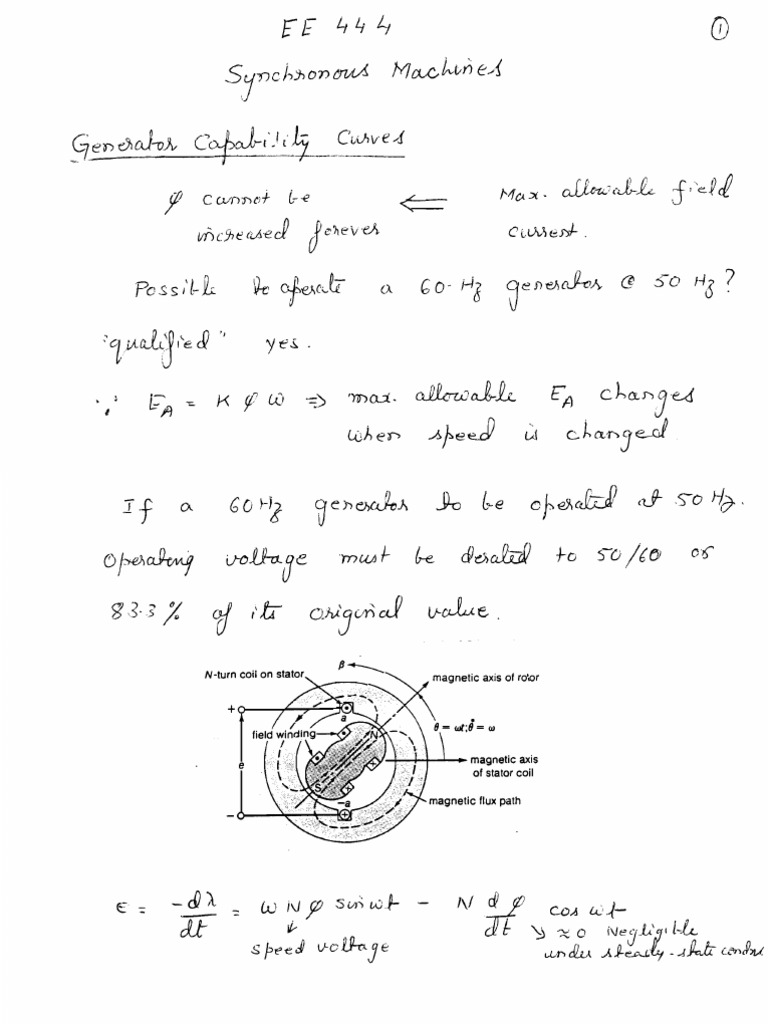 EE 444
①
Synchronous Machines
Generator Capability Curves
φ cannot be ⇐ Max. allowable field
increased forever current.
Possible to operate a 60-Hz generator @ 50 Hz?
"qualified" yes.
∵ E_A = K φ ω ⇒ max. allowable E_A changes
when speed is changed
If a 60Hz generator to be operated at 50 Hz.
Operating voltage must be derated to 50/60 or
83.3% of its original value.
β
N-turn coil on stator
magnetic axis of rotor
+
a
field winding
N
θ = ωt; θ̇ = ω
e
magnetic axis
of stator coil
S
-a
magnetic flux path
-
e = -dλ/dt = ω N φ sin ωt - N dφ/dt cos ωt
speed voltage
≈ 0 Negligible
under steady-state condns